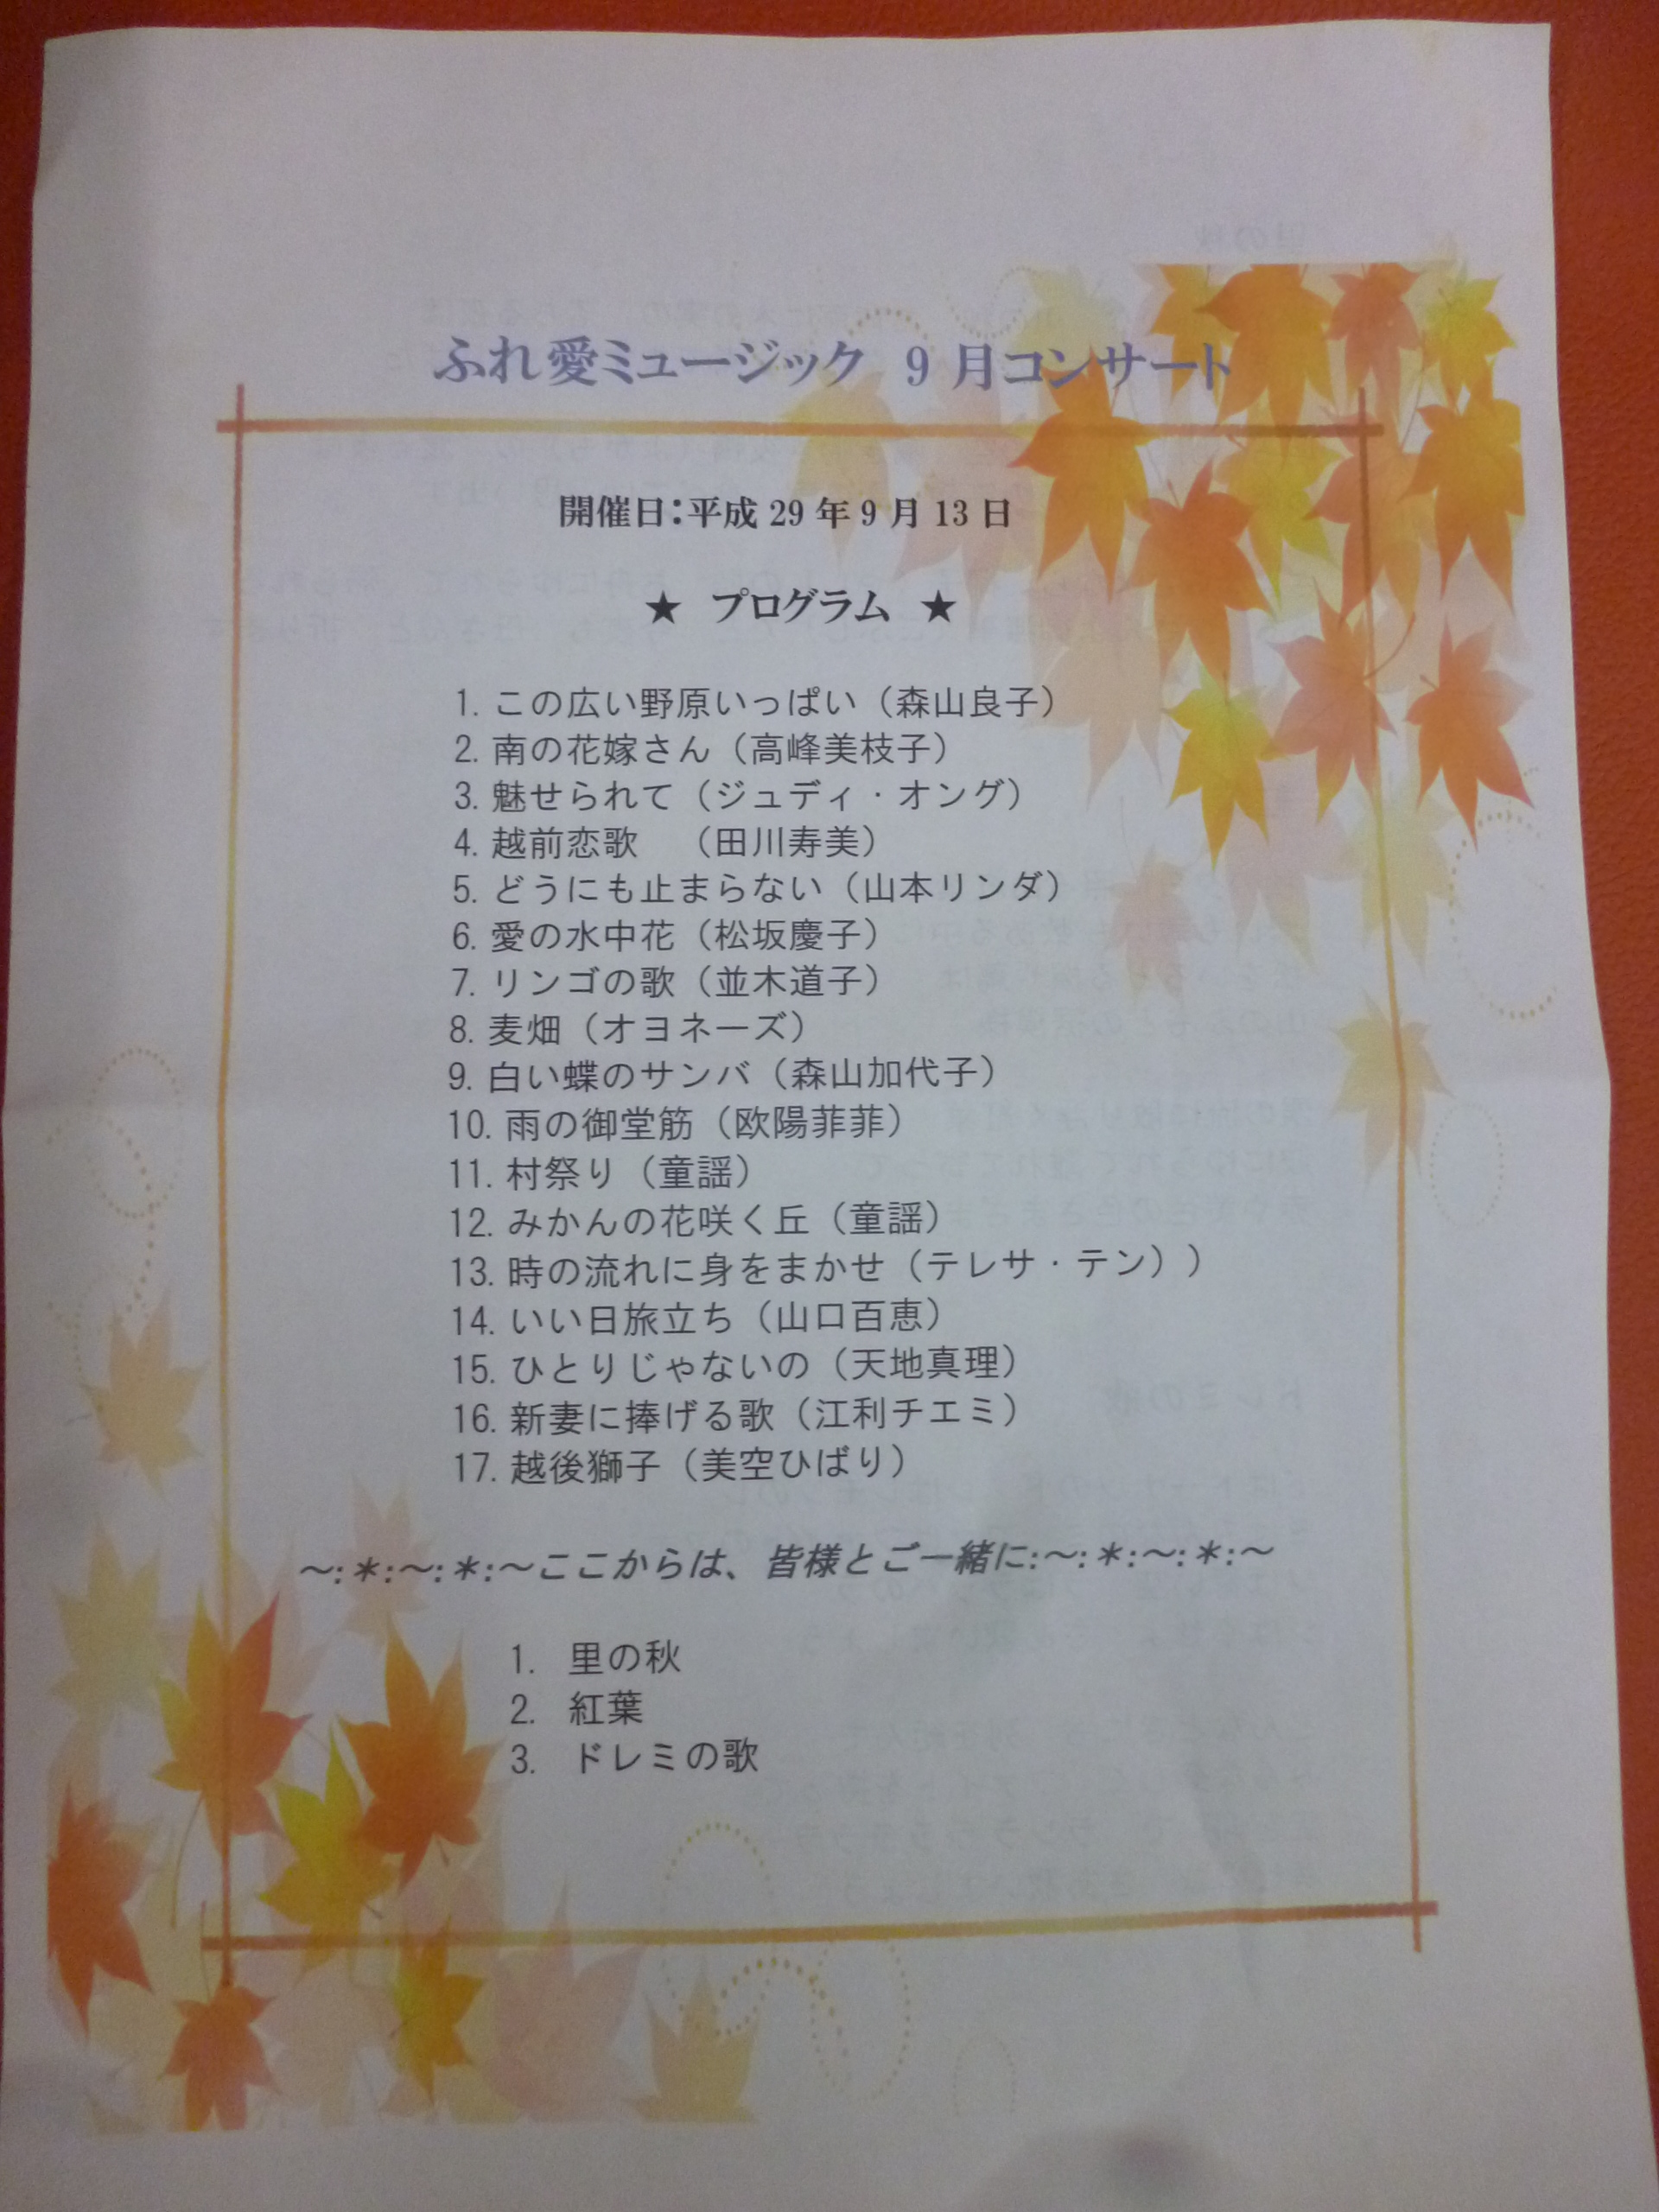 ふれ愛ミュージック 9月コンサート
開催日：平成29年9月13日
★ プログラム ★
1. この広い野原いっぱい（森山良子）
2. 南の花嫁さん（高峰美枝子）
3. 魅せられて（ジュディ・オング）
4. 越前恋歌　（田川寿美）
5. どうにも止まらない（山本リンダ）
6. 愛の水中花（松坂慶子）
7. リンゴの歌（並木道子）
8. 麦畑（オヨネーズ）
9. 白い蝶のサンバ（森山加代子）
10. 雨の御堂筋（欧陽菲菲）
11. 村祭り（童謡）
12. みかんの花咲く丘（童謡）
13. 時の流れに身をまかせ（テレサ・テン））
14. いい日旅立ち（山口百恵）
15. ひとりじゃないの（天地真理）
16. 新妻に捧げる歌（江利チエミ）
17. 越後獅子（美空ひばり）
～:＊:～:＊:～ここからは、皆様とご一緒に:～:＊:～:＊:～
1. 里の秋
2. 紅葉
3. ドレミの歌